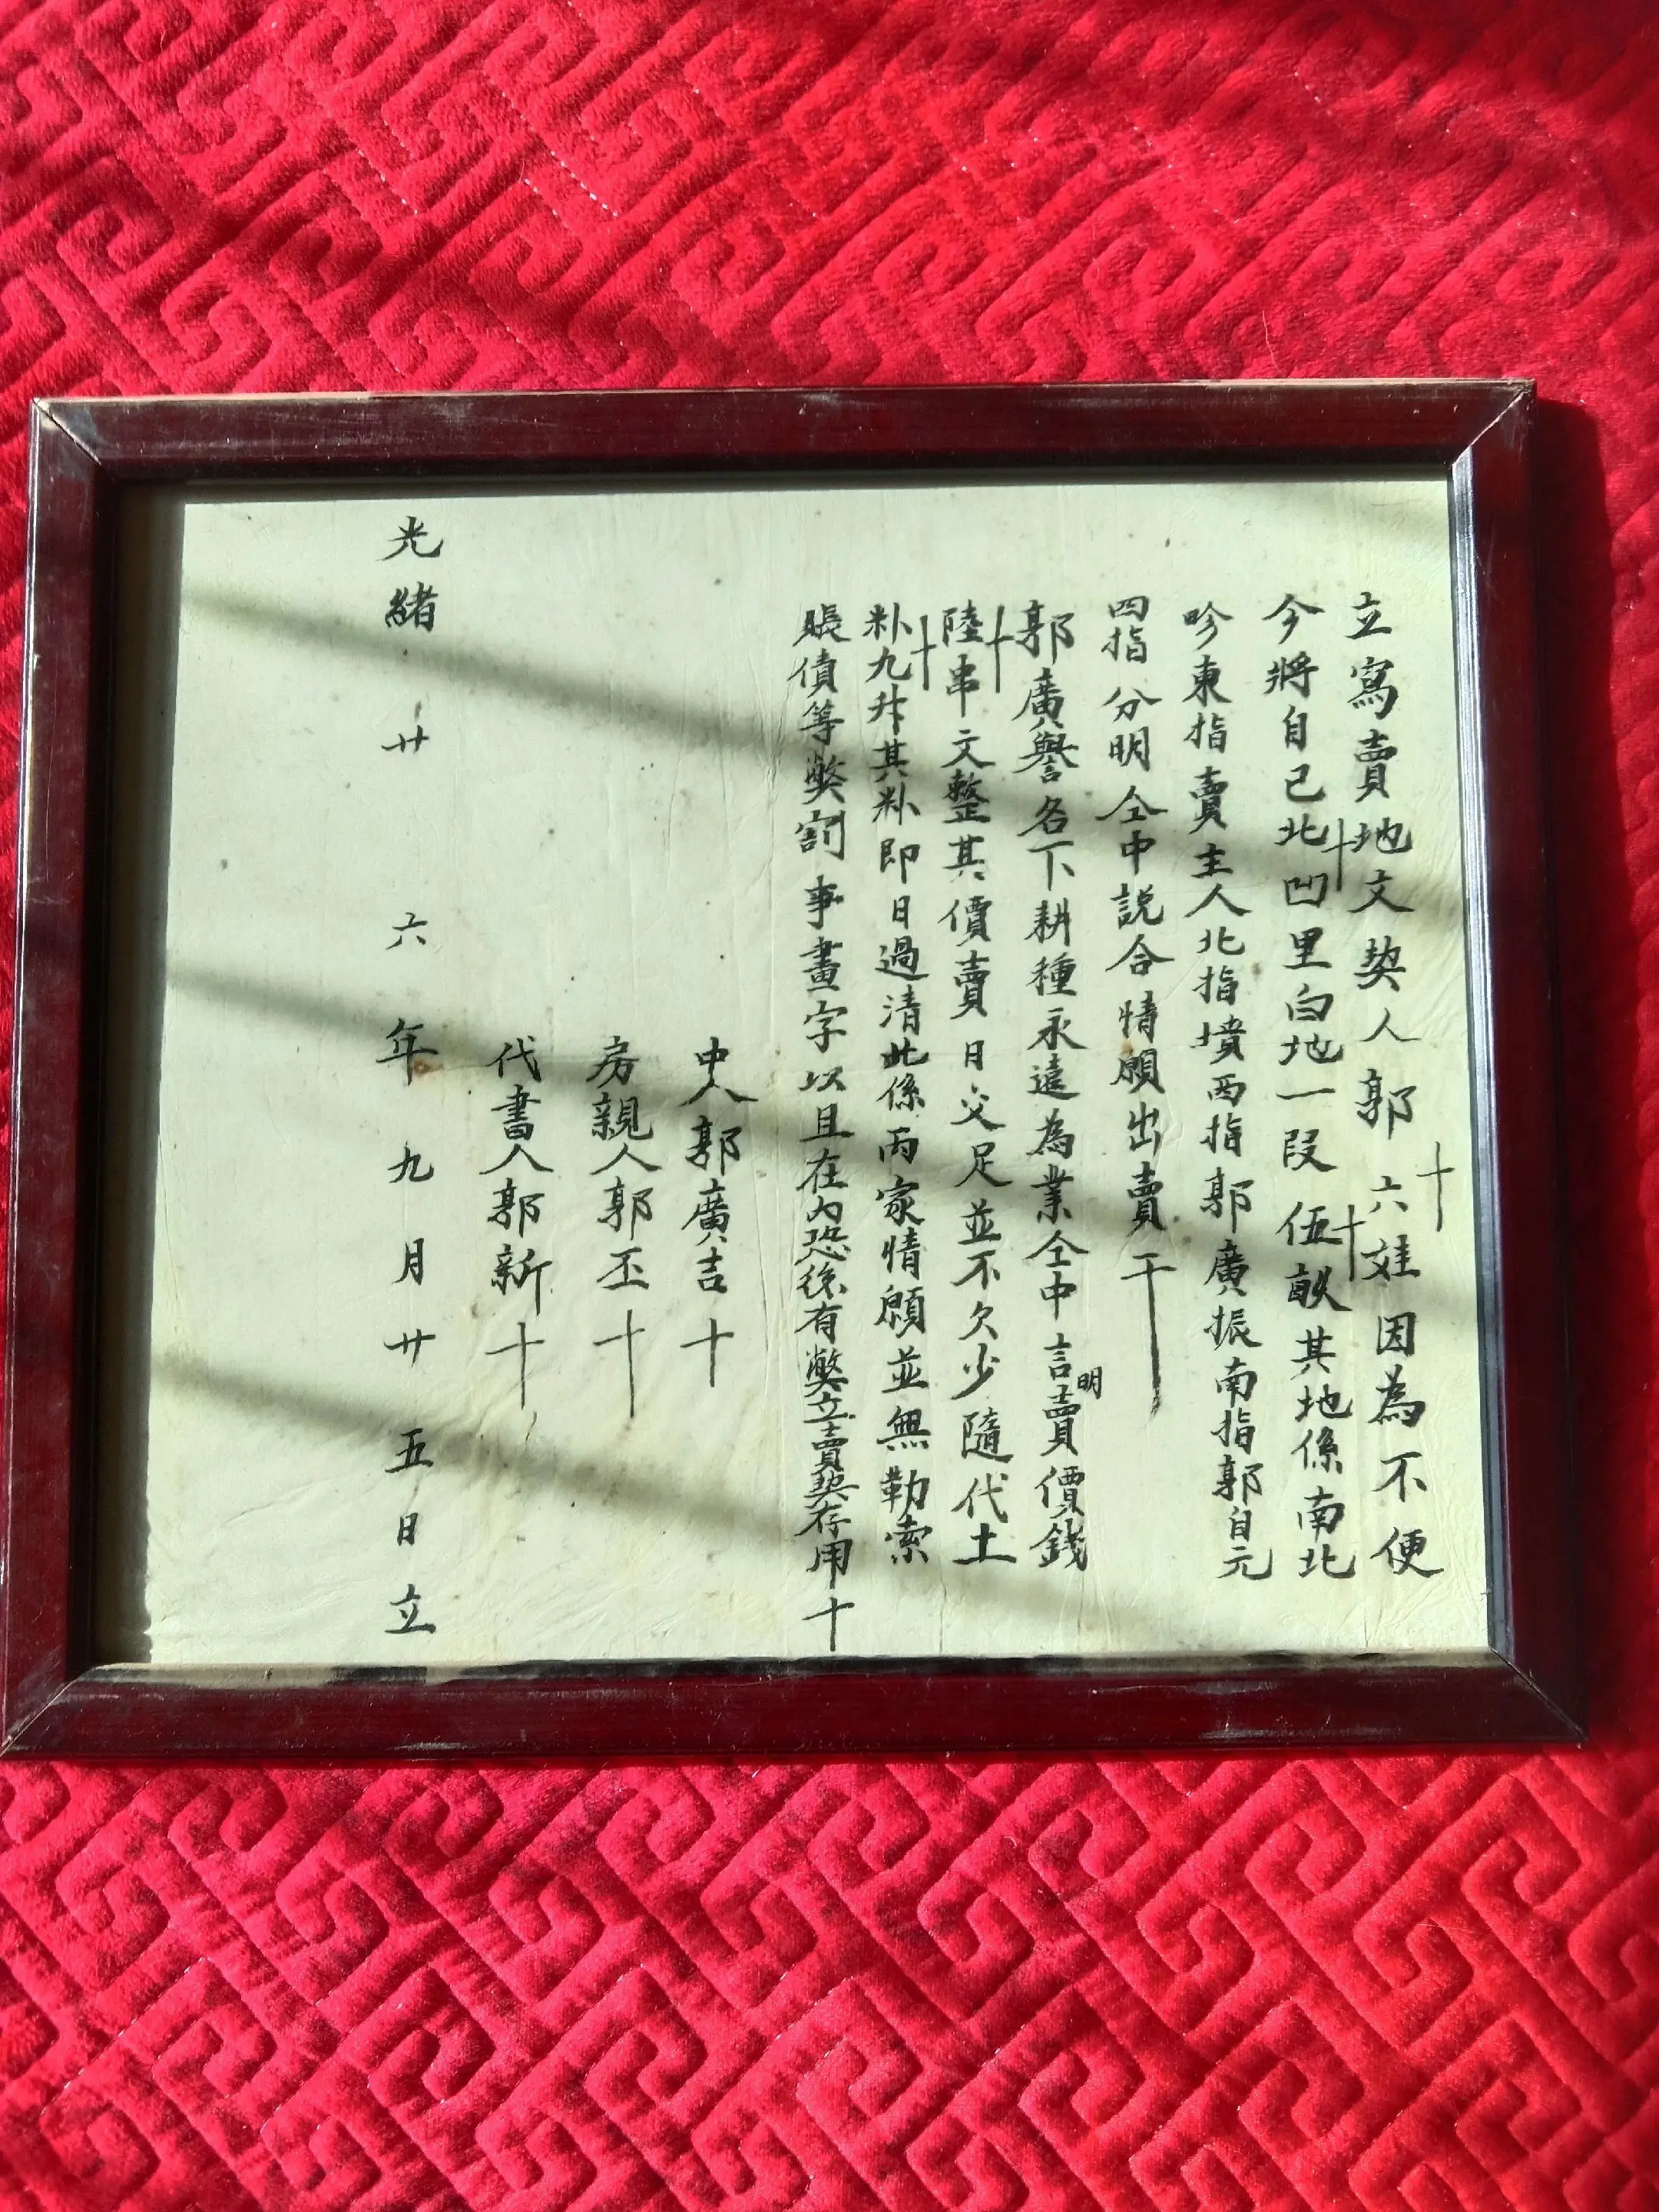 立寫賣地文契人郭六娃因為不便
今將自己北凹里白地一段伍畝其地係南北
畛東指賣主人北指墳西指郭廣振南指郭自元
四指分明仝中説合情願出賣于
郭廣譽名下耕種永遠為業仝中言明賣價錢
陸串文整其價賣日交足並不欠少隨代土
籵九升其籵即日過清此係両家情願並無勒索
賬債等獘割事畫字以且在内恐後有獘立賣契存用十
中人郭廣吉十
房親人郭丕十
代書人郭新十
光緒廿六年九月廿五日立